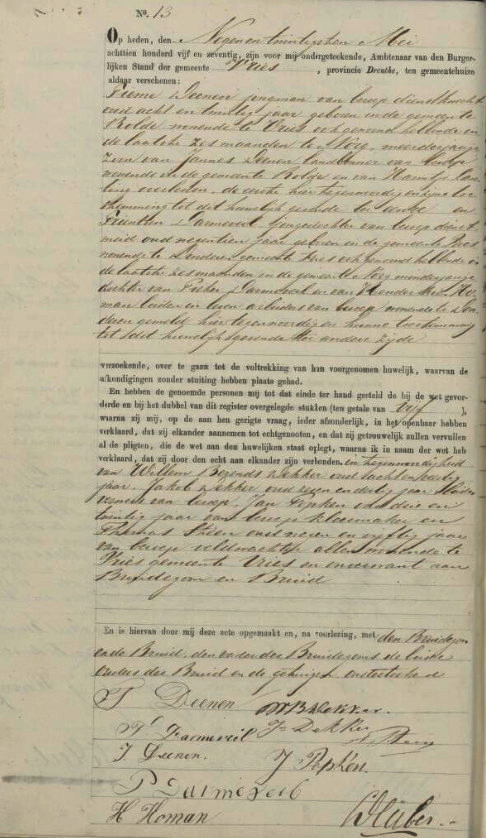 No. 13
Op heden, den Negenentwintigsten Mei
achttien honderd vijf en zeventig, zijn voor mij ondergeteekende, Ambtenaar van den Burger-
lijken Stand der gemeente Vries, provincie Drenthe, ten gemeentehuize
aldaar verschenen:
Deenen jongman van beroep dienstknecht
oud acht en twintig jaar geboren in de gemeente
Rolde wonende te Vries ook gewoond hebbende
de laatste zes maanden te meerderjarige
zoon van Jannes Deenen landbouwer van beroep
wonende in de gemeente Rolde en van
overleden, de eerste hier tegenwoordig en zijne toe
stemming tot dit huwelijk gevende ter eenre en
Darmeveil jongedochter van beroep dienst
meid oud negentien jaar geboren in de gemeente Vries
wonende te gemeente Vries ook gewoond hebbende
de laatste zes maanden in de gemeente minderjarige
dochter van Darmeveil en van Ho-
man beiden in leven arbeiders van beroep wonende te
gemeld hier tegenwoordig en hunne toestemming
tot dit huwelijk gevende ter andere zijde
verzoekende, over te gaan tot de voltrekking van hun voorgenomen huwelijk, waarvan de
afkondigingen zonder stuiting hebben plaats gehad.
En hebben de genoemde personen mij tot dat einde ter hand gesteld de bij de wet gevor-
derde en bij het dubbel van dit register overgelegde stukken (ten getale van vijf),
waarna zij mij, op de aan hen gerigte vraag, ieder afzonderlijk, in het openbaar hebben
verklaard, dat zij elkander aannemen tot echtgenooten, en dat zij getrouwelijk zullen vervullen
al de pligten, die de wet aan den huwelijken staat oplegt, waarna ik in naam der wet heb
verklaard, dat zij door den echt aan elkander zijn verbonden, in tegenwoordigheid
van Willem Berends Dekker oud achtenveertig
jaar, Dekker oud negen en dertig jaar
van beroep, Jan Popken oud drie en
twintig jaar van beroep kleermaker en
Thomas oud negen en vijftig jaar
van beroep veldwachter allen wonende te
Vries gemeente Vries en onverwant aan
Bruidegom en Bruid
En is hiervan door mij deze acte opgemaakt en, na voorlezing, met den Bruidegom
en de Bruid, den vader des Bruidegoms de beide
ouders der Bruid en de getuigen onderteekend
Deenen WB Dekker.
Darmeveil J Dekker
J Deenen. J Popken.
P Darmeveil
H Homan